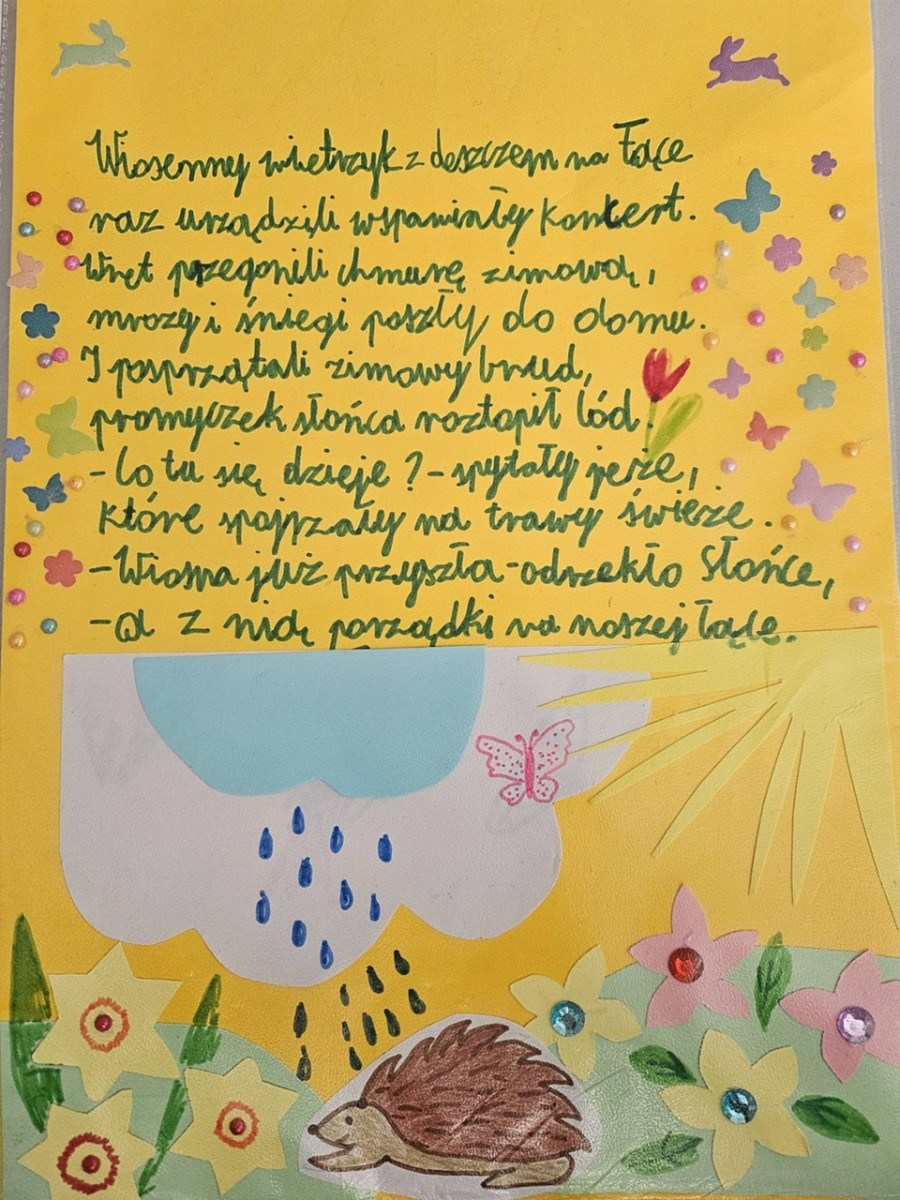 Wiosenny wietrzyk z deszczem na Łące
raz urządzili wspaniały koncert.
Wnet przegonili chmurę zimową,
mrozy i śniegi poszły do domu.
I posprzątali zimowy brud,
promyczek słońca roztopił lód.
- Co tu się dzieje? - spytały jeże,
które spojrzały na trawy świeże.
- Wiosna już przyszła - odrzekło Słońce,
- a z nią porządki na naszej łące.